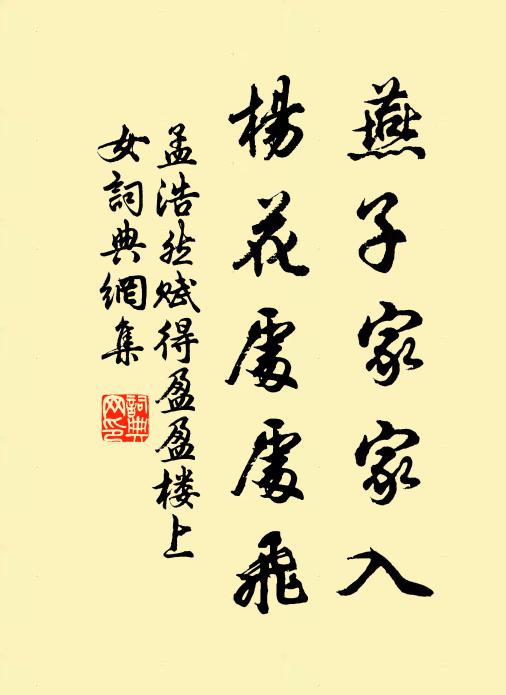 燕子家家入
楊花處處飛
孟浩然賦得盈盈楼上
女詞典網集
詞典
网印